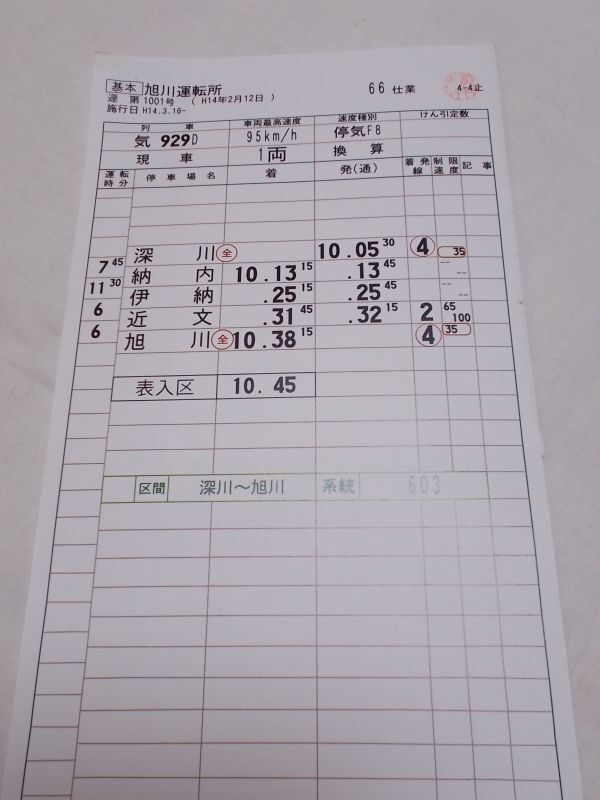 基本 旭川運転所 66仕業 4-4止
達 第1001号 ( H14年2月12日 )
施行日 H14.3.16-
列車 車両最高速度 速度種別 けん引定数
気 929D 95km/h 停気F8
現車 1両 換算
運転時分 停車場名 着 発(通) 着発線 制限速度 記事
深川 全 10.05 30 4 35
7 45
納内 10.13 15 .13 45 -- --
11 30
伊納 .25 15 .25 45 -- --
6
近文 .31 45 .32 15 2 65 100
6
旭川 全 10.38 15 4 35
表入区 10.45
区間 深川～旭川 系統 603